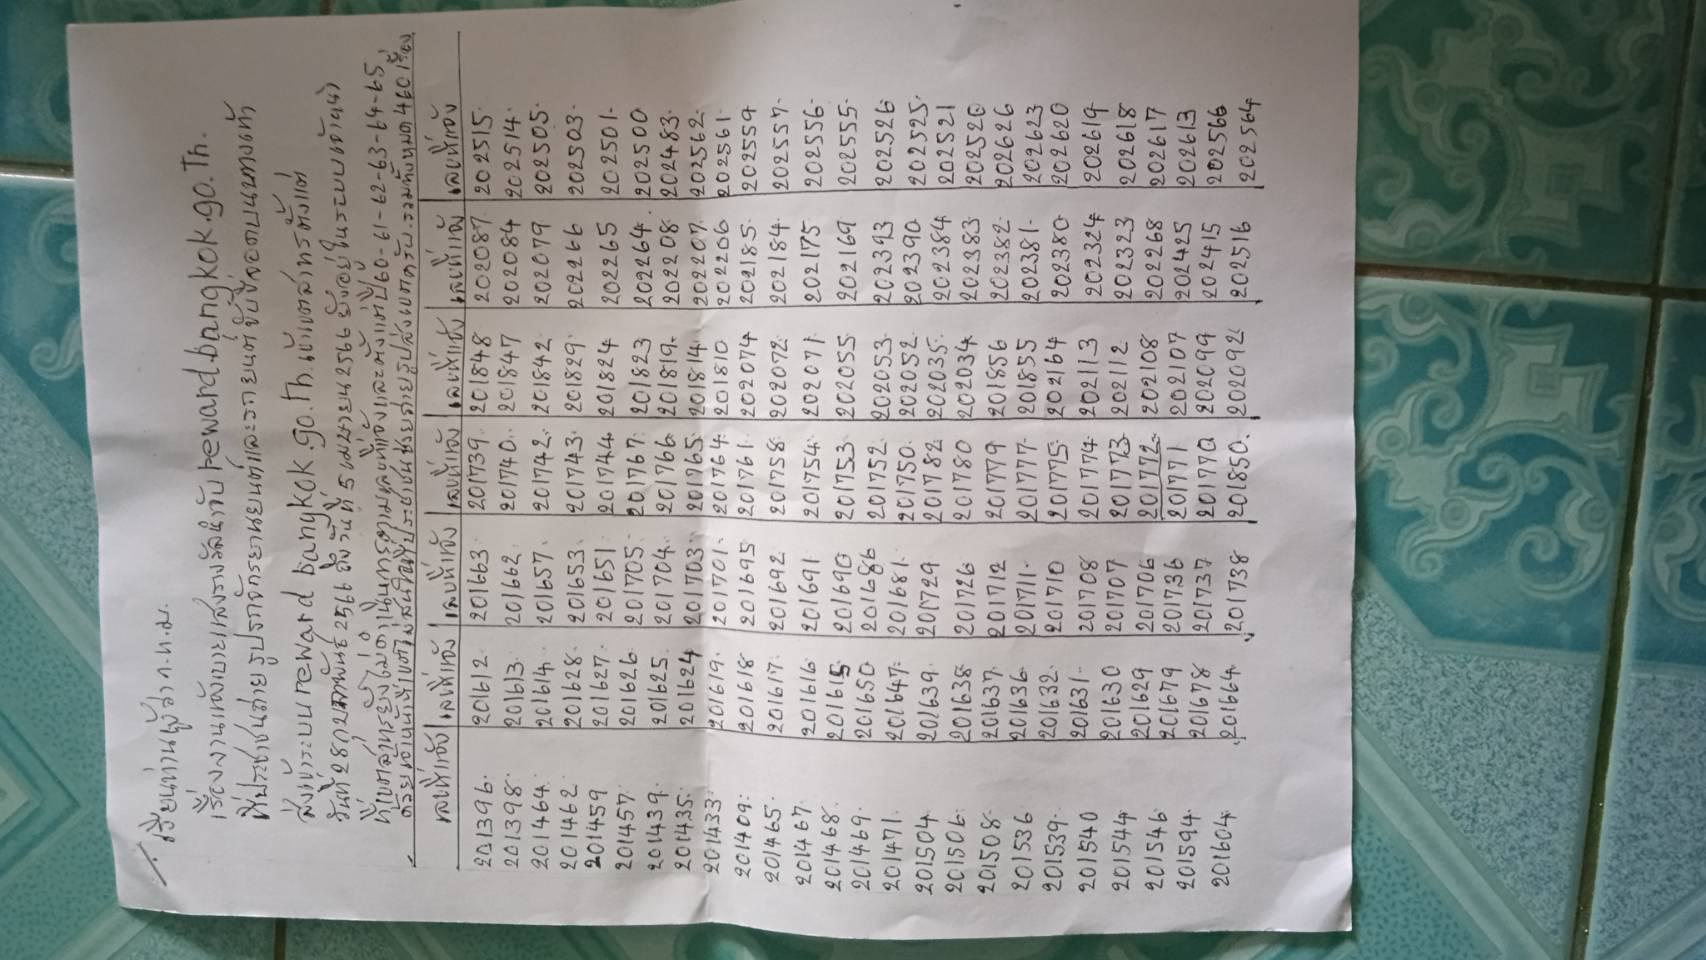 เรียนท่านผู้ว่า ก.ท.ม.
เรื่องงานแจ้งเบาะแสรางวัลนำจับ reward.bangkok.go.Th.
ที่ประชาชนถ่ายรูปรถจักรยานยนต์และรถยนต์ขับขี่จอดบนทางเท้า
ส่งเข้าระบบ reward bangkok.go.Th.
วันที่ 28 กุมภาพันธ์ 2566 ถึงวันที่ 5 เมษายน 2566 ยังอยู่ในระบบ
60-61-62-63-64-65
460 เรื่อง
เลขที่แจ้ง เลขที่แจ้ง เลขที่แจ้ง เลขที่แจ้ง เลขที่แจ้ง เลขที่แจ้ง เลขที่แจ้ง
201396 201612 201663 201739 201848 202087 202515
201398 201613 201662 201740 201847 202084 202514
201464 201614 201657 201742 201842 202079 202505
201462 201628 201653 201743 201829 202266 202503
201459 201627 201651 201744 201824 202265 202501
201457 201626 201705 201767 201823 202264 202500
201439 201625 201704 201766 201819 202208 202483
201435 201624 201703 201765 201814 202207 202562
201433 201619 201701 201764 201810 202206 202561
201409 201618 201695 201761 202074 202185 202559
201465 201617 201692 201758 202072 202184 202557
201467 201616 201691 201754 202071 202175 202556
201468 201615 201690 201753 202055 202169 202555
201469 201650 201686 201752 202053 202393 202526
201471 201647 201681 201750 202052 202390 202525
201504 201639 201729 201782 202035 202384 202521
201506 201638 201726 201780 202034 202383 202520
201508 201637 201712 201779 201856 202382 202626
201536 201636 201711 201777 201855 202381 202623
201539 201632 201710 201775 202164 202380 202620
201540 201631 201708 201774 202113 202324 202619
201544 201630 201707 201773 202112 202323 202618
201546 201629 201706 201772 202108 202268 202617
201594 201679 201736 201771 202107 202425 202613
201604 201678 201737 201770 202099 202415 202566
201664 201738 201850 202092 202516 202564